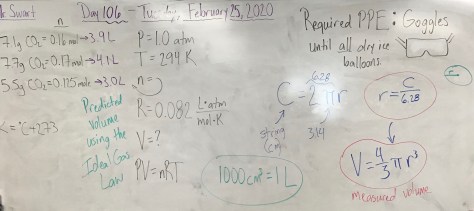 Mr Swart Day 106 - Tuesday, February 25, 2020
n
7.1g CO2 = 0.16 mol → 3.9L
7.7g CO2 = 0.17 mol → 4.1L
5.5g CO2 = 0.125 mole → 3.0L
K = °C + 273
Predicted
Volume
using the
Ideal Gas
Law
P = 1.0 atm
T = 294 K
n =
R = 0.082 L•atm
mol•K
V = ?
PV = nRT
1000 cm³ = 1 L
Required PPE: Goggles
until all dry ice
balloons
6.28
C = 2πr
string
(cm)
3.14
r = C
6.28
V = 4/3 πr³
measured volume